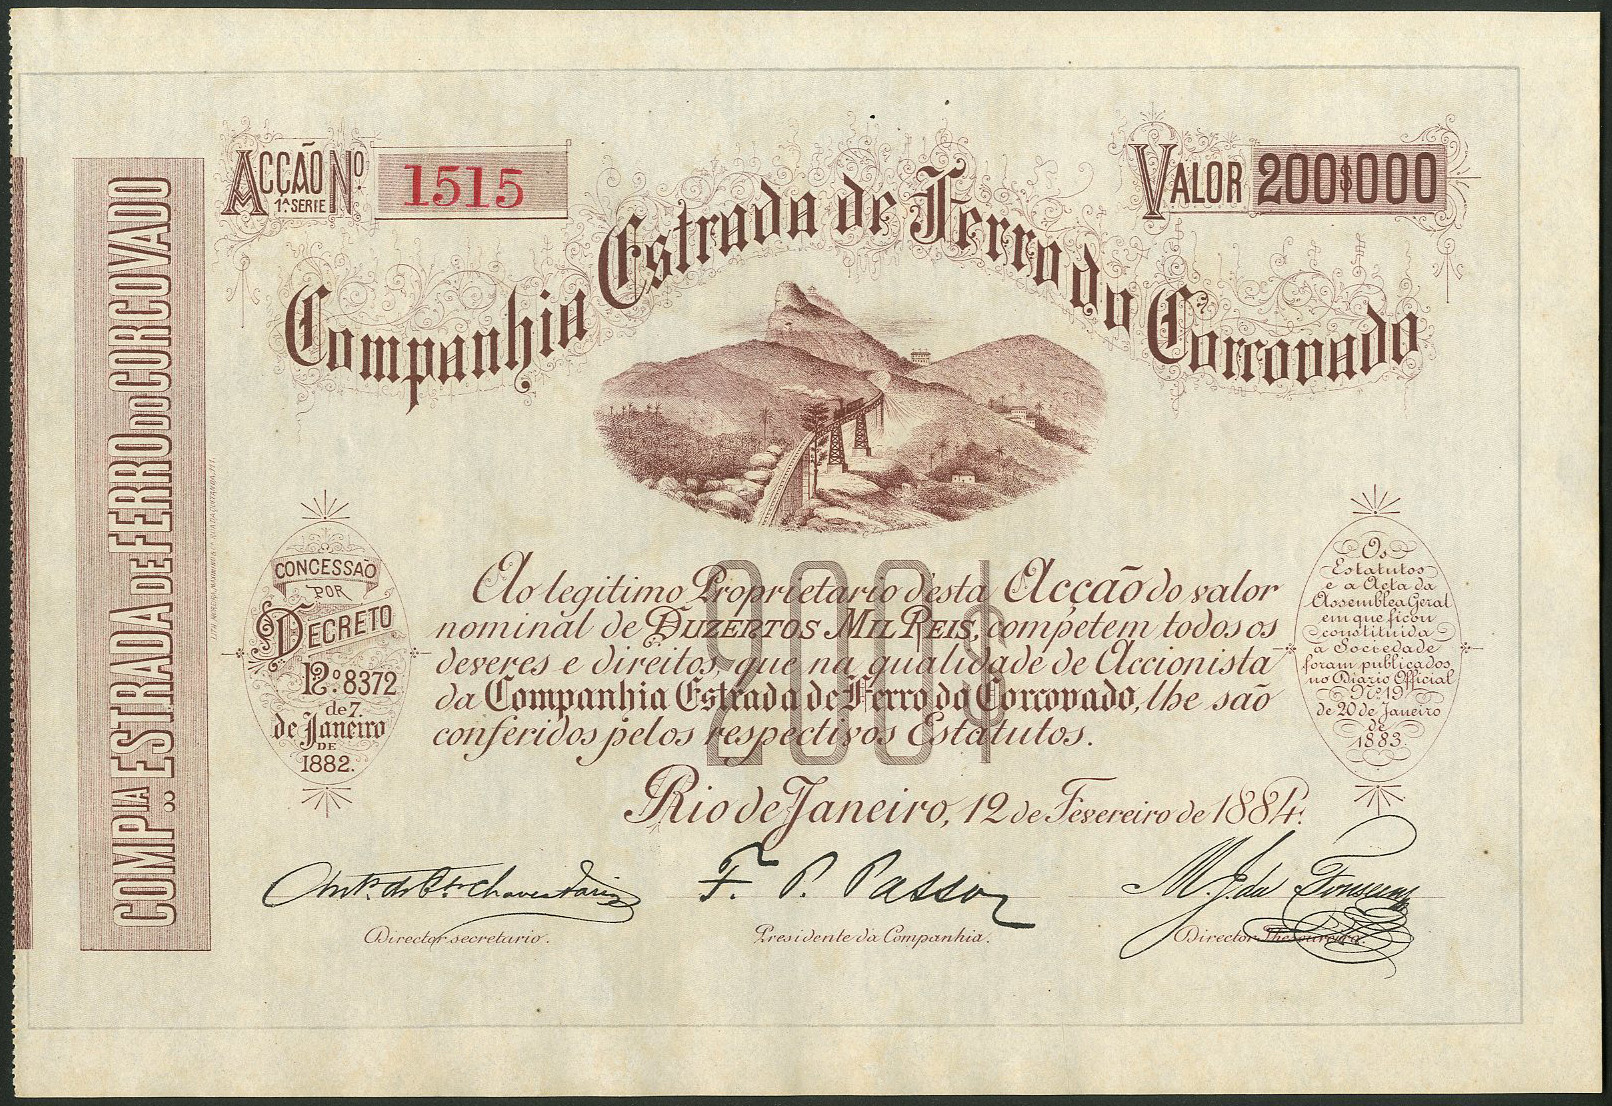 ACCÃO Nº
1ª SERIE
1515
VALOR 200$000
Companhia Estrada de Ferro do Corcovado
COMP.IA ESTRADA DE FERRO DO CORCOVADO
CONCESSÃO
POR
DECRETO
Nº 8372
de 7
de Janeiro
DE
1882.
Ao legitimo Proprietario d'esta Acção do valor
nominal de DUZENTOS MIL REIS, competem todos os
deveres e direitos, que na qualidade de Accionista
da Companhia Estrada de Ferro do Corcovado, lhe são
conferidos pelos respectivos Estatutos.
200$
Os
Estatutos
e a Acta da
Assemblea Geral
em que ficou
constituida
a Sociedade
foram publicados
no Diario Official
Nº 19
de 20 de Janeiro
de
1883.
Rio de Janeiro, 12 de Fevereiro de 1884.
F. P. Passos
M. J. da Fonseca
Director secretario.
Presidente da Companhia.
Director Thesoureiro.